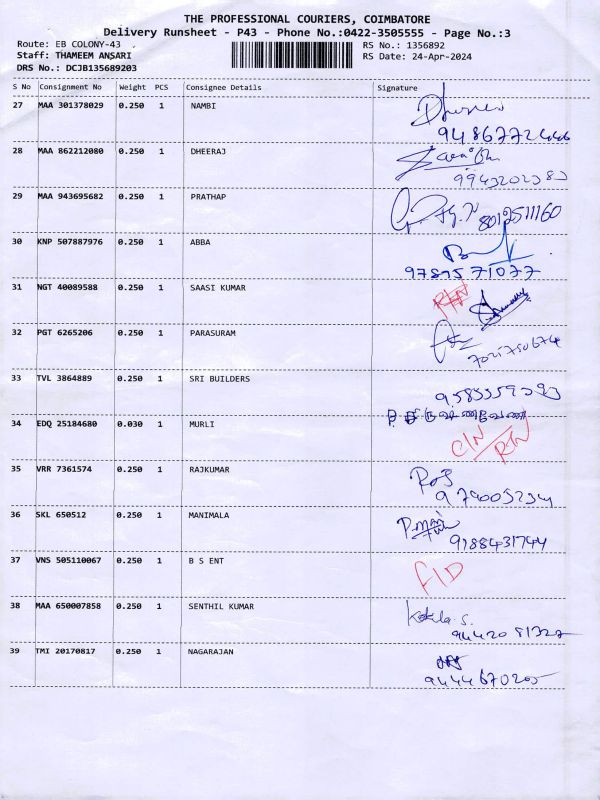 THE PROFESSIONAL COURIERS, COIMBATORE
Delivery Runsheet - P43 - Phone No.:0422-3505555 - Page No.:3
Route: EB COLONY-43 RS No.: 1356892
Staff: THAMEEM ANSARI RS Date: 24-Apr-2024
DRS No.: DCJB135689203
S No Consignment No Weight PCS Consignee Details Signature
27 MAA 301378029 0.250 1 NAMBI
28 MAA 862212080 0.250 1 DHEERAJ
9943202383
29 MAA 943695682 0.250 1 PRATHAP
8012511160
30 KNP 507887976 0.250 1 ABBA
9789571077
31 NGT 40089588 0.250 1 SAASI KUMAR
32 PGT 6265206 0.250 1 PARASURAM
33 TVL 3864889 0.250 1 SRI BUILDERS
34 EDQ 25184680 0.030 1 MURLI
35 VRR 7361574 0.250 1 RAJKUMAR
36 SKL 650512 0.250 1 MANIMALA
9188431744
37 VNS 505110067 0.250 1 B S ENT
38 MAA 650007858 0.250 1 SENTHIL KUMAR
Kokila S.
39 TMI 20170817 0.250 1 NAGARAJAN
9444670205